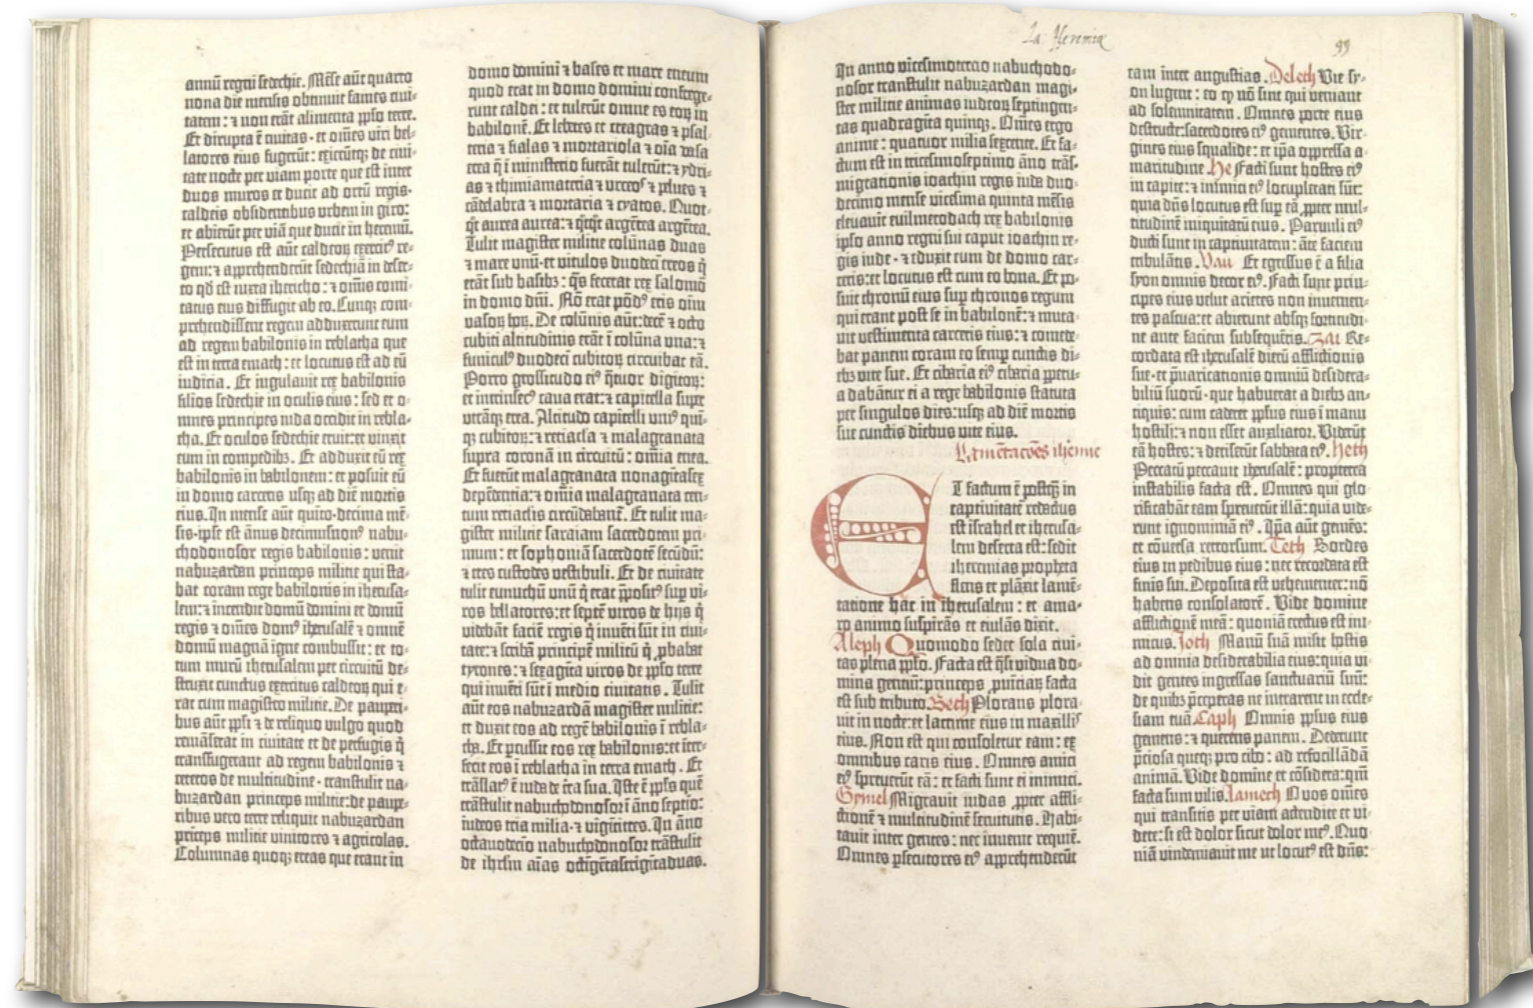 annū regni sedechie. Mēse aūt quarto
nona die mensis obtinuit fames ciui-
tatem: ⁊ non erāt alimenta pp̄lo terre.
Et dirupta ē ciuitas· et om̄es viri bel-
latores eius fugerūt: exierūtqꝫ de ciui-
tate nocte per viam porte que est inter
duos muros et ducit ad ortū regis·
caldeis obsidentibus vrbem in giro:
et abierūt per viā que ducit in heremū.
Persecutus est aūt caldeoꝝ exercitꝰ re-
gem: ⁊ apprehenderūt sedechiā in deser-
to qd̄ est iuxta ihericho: ⁊ om̄is comi-
tatus eius diffugit ab eo. Cunqꝫ com-
prehendissent regem adduxerunt eum
ad regem babilonis in reblatha que
est in terra emath: et locutus est ad eū
iudicia. Et iugulauit rex babilonis
filios sedechie in oculis eius: sed et o-
mnes principes iuda occidit in rebla-
tha. Et oculos sedechie eruit: et vinxit
eum in compedibꝫ. Et adduxit eū rex
babilonis in babilonem: et posuit eū
in domo carceris usqꝫ ad diē mortis
eius. In mense aūt quīto· decima mē-
sis· ipse est ānus decimusnonꝰ nabu-
chodonosor regis babilonis: venit
nabuzardan princeps militie qui sta-
bat coram rege babilonis in iherusa-
lem: ⁊ incendit domū domini et domū
regis ⁊ om̄es domꝰ iherusalē ⁊ omnē
domū magnā igne combussit: et to-
tum murū iherusalem per circuitū de-
struxit cunctus exercitus caldeoꝝ qui e-
rat cum magistro militie. De pauperi-
bus aūt pp̄li ⁊ de reliquo vulgo quod
remāserat in ciuitate et de perfugis q̇
transfugerant ad regem babilonis ⁊
ceteros de multitudine· transtulit na-
buzardan princeps militie: de paupe-
ribus vero terre reliquit nabuzardan
prīceps militie vinitores ⁊ agricolas.
Columnas quoqꝫ ereas que erant in
domo domini ⁊ bases et mare eneum
quod erat in domo domini confrege-
runt caldei: et tulerūt omne es eoꝝ in
babilonē. Et lebetes et creagras ⁊ psal-
teria ⁊ fialas ⁊ mortariola ⁊ oīa vasa
erea q̄ ī ministerio fuerāt tulerūt: ⁊ ydri-
as ⁊ thimiamateria ⁊ vrceoˢ ⁊ pelues ⁊
cādelabra ⁊ mortaria ⁊ cyatos. Quot-
q̄t aurea aurea: ⁊ q̄tq̄t argētea argētea.
Tulit magister militie colūnas duas
⁊ mare vnū· et vitulos duodecī ereos q̇
erāt sub basibꝫ: q̄s fecerat rex salomō
in domo dn̄i. Nō erat pōdꝰ eris oīm
vasoꝝ hoꝝ. De colūnis aūt: decē ⁊ octo
cubiti altitudinis erāt ī colūna vna: ⁊
funiculꝰ duodecī cubitoꝝ circuibat eā.
Porro grossitudo eiꝰ q̄tuor digitoꝝ:
et intrinsecꝰ caua erat: ⁊ capitella supe
vtrāqꝫ erea. Altitudo capitelli vniꝰ quī-
qꝫ cubitoꝝ: ⁊ retiacla ⁊ malagranata
supra coronā in circuitū: omīa enea.
Et fuerūt malagranata nonagītasex
depēdentia: ⁊ om̄ia malagranata cen-
tum retiaclis circūdabant̄. Et tulit ma-
gister militie saraiam sacerdotem pri-
mum: et sophoniā sacerdotē secūdū:
⁊ tres custodes vestibuli. Et de ciuitate
tulit eunuchū vnū q̇ erat p̄positꝰ sup̄ vi-
ros bellatores: et septē viros de hijs q̇
videbāt faciē regis q̇ inuēti sūt in ciui-
tate: ⁊ scribā principē militū q̇ ꝓbabat
tyrones: ⁊ sexagīta viros de pp̄lo terre
qui inuēti sūt ī medio ciuitatis. Tulit
aūt eos nabuzardā magister militie:
et duxit eos ad regē babilonis ī rebla-
tha. Et ꝑcussit eos rex babilonis: et īter-
fecit eos ī reblatha in terra emath. Et
trāslatꝰ ē iuda de t̄ra sua. Iste ē pp̄ls quē
trāstulit nabuchodonosor ī āno septīo:
iudeos tria milia· ⁊ vigītitres. In āno
octauodecīo nabuchodonosor trāstulit
de ihrlm aīas octīgētastrigītaduas.
La: Jeremiæ
99
In anno vicesimotercio nabuchodo-
nosor transtulit nabuzardan magi-
ster militie animas iudeoꝝ septingen-
tas quadragīta quinqꝫ. Om̄es ergo
anime: quatuor milia sexcente. Et fa-
ctum est in tricesimoseptimo āno trās-
migrationis ioachin regis iude duo-
decimo mense vicesima quinta mēsis
eleuauit euilmerodach rex babilonis
ipso anno regni sui caput ioachin re-
gis iude· ⁊ eduxit eum de domo car-
ceris: et locutus est cum eo bona. Et po-
suit thronū eius sup̄ thronos regum
qui erant post se in babilonē: ⁊ muta-
uit vestimenta carceris eius: ⁊ comede-
bat panem coram eo semp̄ cunctis di-
ebꝫ vite sue. Et cibaria eiꝰ cibaria ꝑpetu-
a dabātur ei a rege babilonis statuta
per singulos dies: usqꝫ ad diē mortis
sue cunctis diebus vite eius.
Lamētacōes iheremie
ET factum ē postqꝫ in
captiuitatē redactus
est israhel et iherusa-
lem deserta est: sedit
iheremias propheta
flens et plāxit lamē-
tatione hac in iherusalem: et ama-
ro animo suspirās et eiulās dixit.
Aleph Quomodo sedet sola ciui-
tas plena pp̄lo. Facta est q̄si vidua do-
mina gentiū: princeps ꝓuīciaꝝ facta
est sub tributo. Beth Plorans plora-
uit in nocte: et lacrime eius in maxillˢ
eius. Non est qui consoletur eam: ex
omnibus caris eius. Omnes amici
eiꝰ spreuerūt eā: et facti sunt ei inimici.
Gymel Migrauit iudas ꝓpter affli-
ctionē ⁊ multitudinē seruitutis. Habi-
tauit inter gentes: nec inuenit requiē.
Omnes ꝑsecutores eiꝰ apprehenderūt
eam inter angustias. Deleth Vie sy-
on lugent: eo ꝙ nō sint qui veniant
ad solennitatem. Omnes porte eius
destructe: sacerdotes eiꝰ gementes. Vir-
gines eius squalide: et ip̄a oppressa a-
maritudine. He Facti sunt hostes eiꝰ
in capite: ⁊ inimici eiꝰ locupletati sūt:
quia dn̄s locutus est sup̄ eā ꝓpter mul-
titudinē iniquitatū eius. Paruuli eiꝰ
ducti sunt in captiuitatem: āte faciem
tribulātis. Vau Et egressus ē a filia
syon omnis decor eiꝰ. Facti sunt prin-
cipes eius velut arietes non inuenien-
tes pascua: et abierunt absqꝫ fortitudi-
ne ante faciem subsequētis. Zai Re-
cordata est iherusalē dierū afflictionis
sue· et p̄uaricationis omniū desidera-
biliū suorū· que habuerat a diebꝫ an-
tiquis: cum caderet pp̄lus eius ī manu
hostili: ⁊ non esset auxiliator. Viderūt
eā hostes: ⁊ deriserūt sabbata eiꝰ. Heth
Peccatū peccauit iherusalē: propterea
instabilis facta est. Omnes qui glo-
rificabāt eam spreuerūt illā: quia vide-
runt ignominiā eiꝰ. Ip̄a aūt gemēs:
et cōuersa retrorsum. Teth Sordes
eius in pedibus eius: nec recordata est
finis sui. Deposita est vehementer: nō
habens consolatorē. Vide domine
afflictionē meā: quoniā erectus est ini-
micus. Joth Manū suā misit hostis
ad omnia desiderabilia eius: quia vi-
dit gentes ingressas sanctuariū suū:
de quibꝫ p̄ceperas ne intrarent in eccle-
siam tuā. Caph Omnis pp̄lus eius
gemens: ⁊ querens panem. Dederunt
p̄ciosa queqꝫ pro cibo: ad refocillādā
animā. Vide domine et cōsidera: qm̄
facta sum vilis. Lamech O vos om̄es
qui transitis per viam: attendite et vi-
dete: si est dolor sicut dolor meꝰ. Quo-
niā vindemiauit me ut locutꝰ est dn̄s: